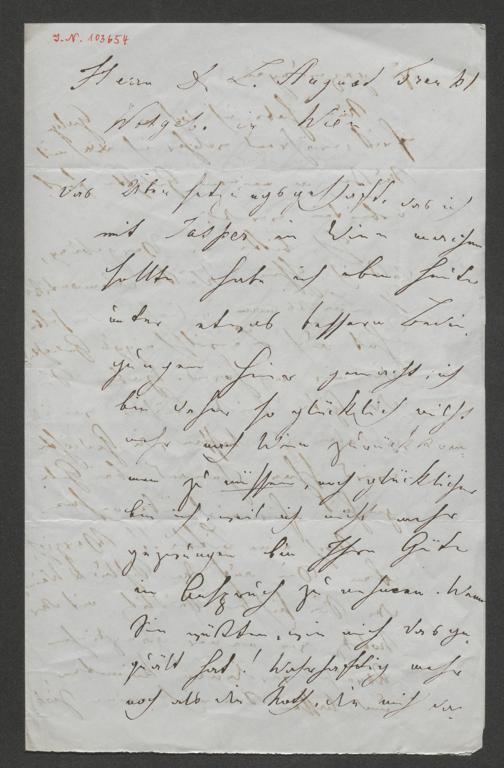 I. N. 103654
Herrn D. L. August Frankl
Wohlgeb. in Wien
Das Übersetzungsgeschäft, das ich
mit Jasper in Wien machen
sollte habe ich eben heute
unter etwas bessern Bedin-
gungen hier gemacht, ich
bin daher so glücklich nicht
mehr nach Wien zurückkom-
men zu müssen, noch glücklicher
bin ich, weil ich nicht mehr
gezwungen bin Ihre Güte
in Anspruch zu nehmen. Wenn
Sie wüßten, wie mich das ge-
quält hat! Wahrhaftig mehr
noch als die Noth, die mich da-